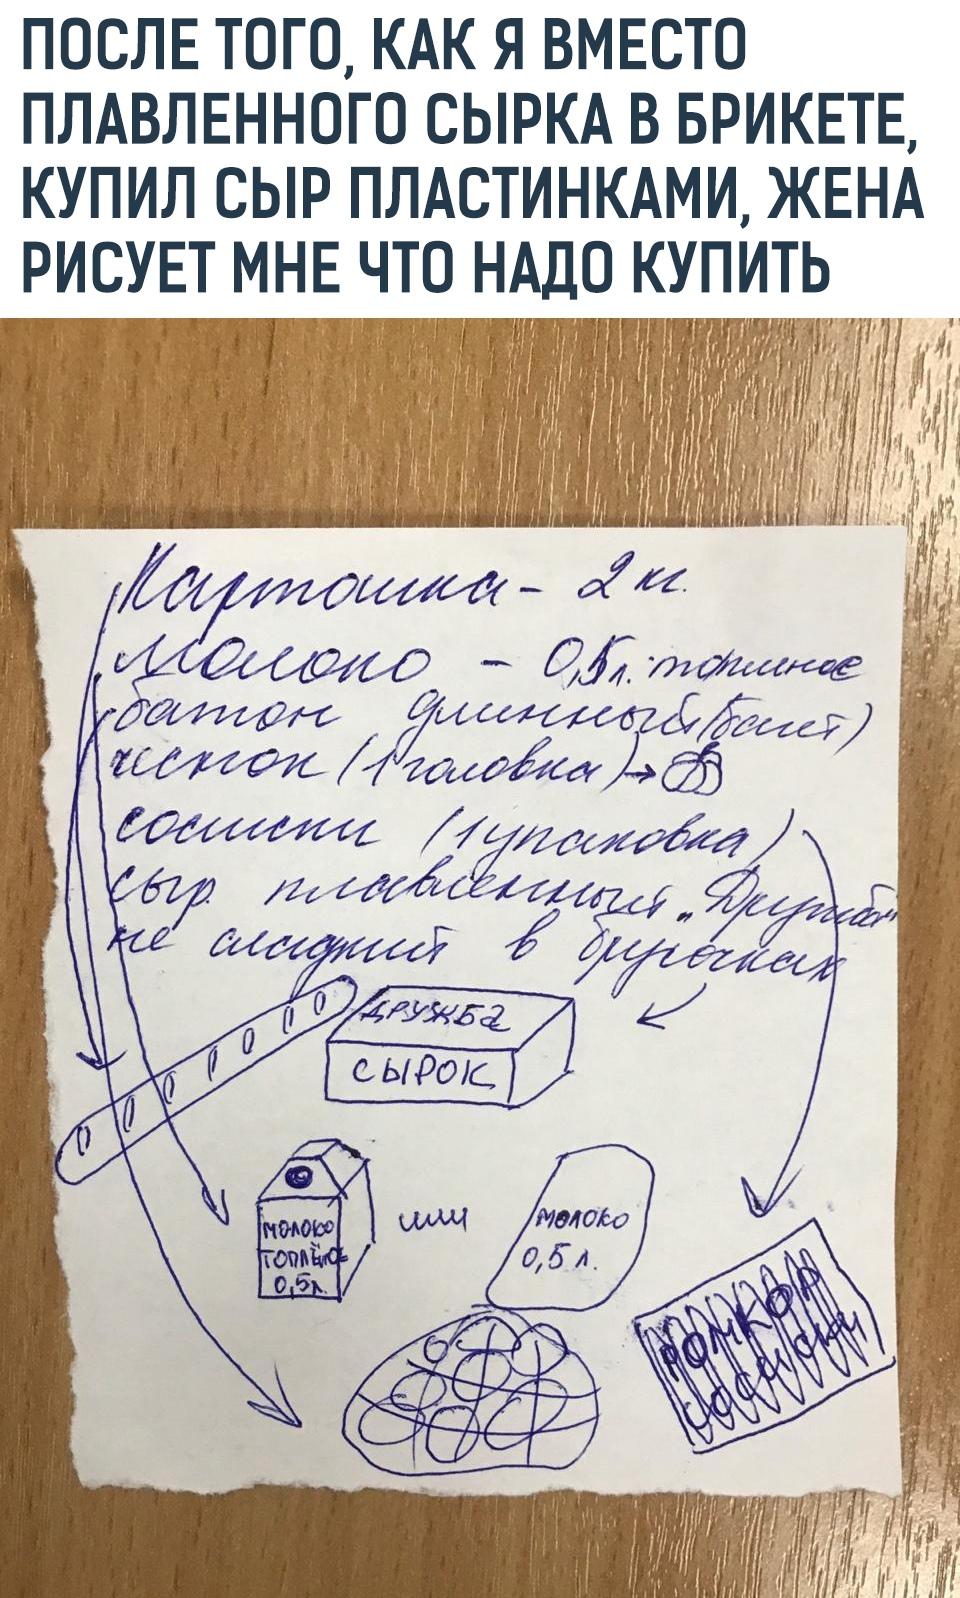 ПОСЛЕ ТОГО, КАК Я ВМЕСТО
ПЛАВЛЕННОГО СЫРКА В БРИКЕТЕ,
КУПИЛ СЫР ПЛАСТИНКАМИ, ЖЕНА
РИСУЕТ МНЕ ЧТО НАДО КУПИТЬ
Картошка - 2 кг.
Молоко - 0,5л. топленое
батон длинный
чеснок (1 головка) →
сосиски (1 упаковка)
сыр плавленный „Дружба"
не сладкий в брусочках
ДРУЖБА
СЫРОК
МОЛОКО
ТОПЛЁНОЕ
0,5л.
или
МОЛОКО
0,5 л.